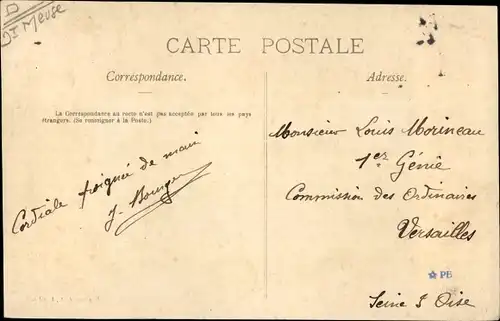 D
Dt Meuse
CARTE POSTALE
Correspondance.
Adresse.
La Correspondance au recto n'est pas acceptée par tous les pays
étrangers. (Se renseigner à la Poste.)
Cordiale poignée de main
J.
Monsieur Louis Morineau
1er Génie
Commission des Ordinaires
Versailles
PB
Seine & Oise